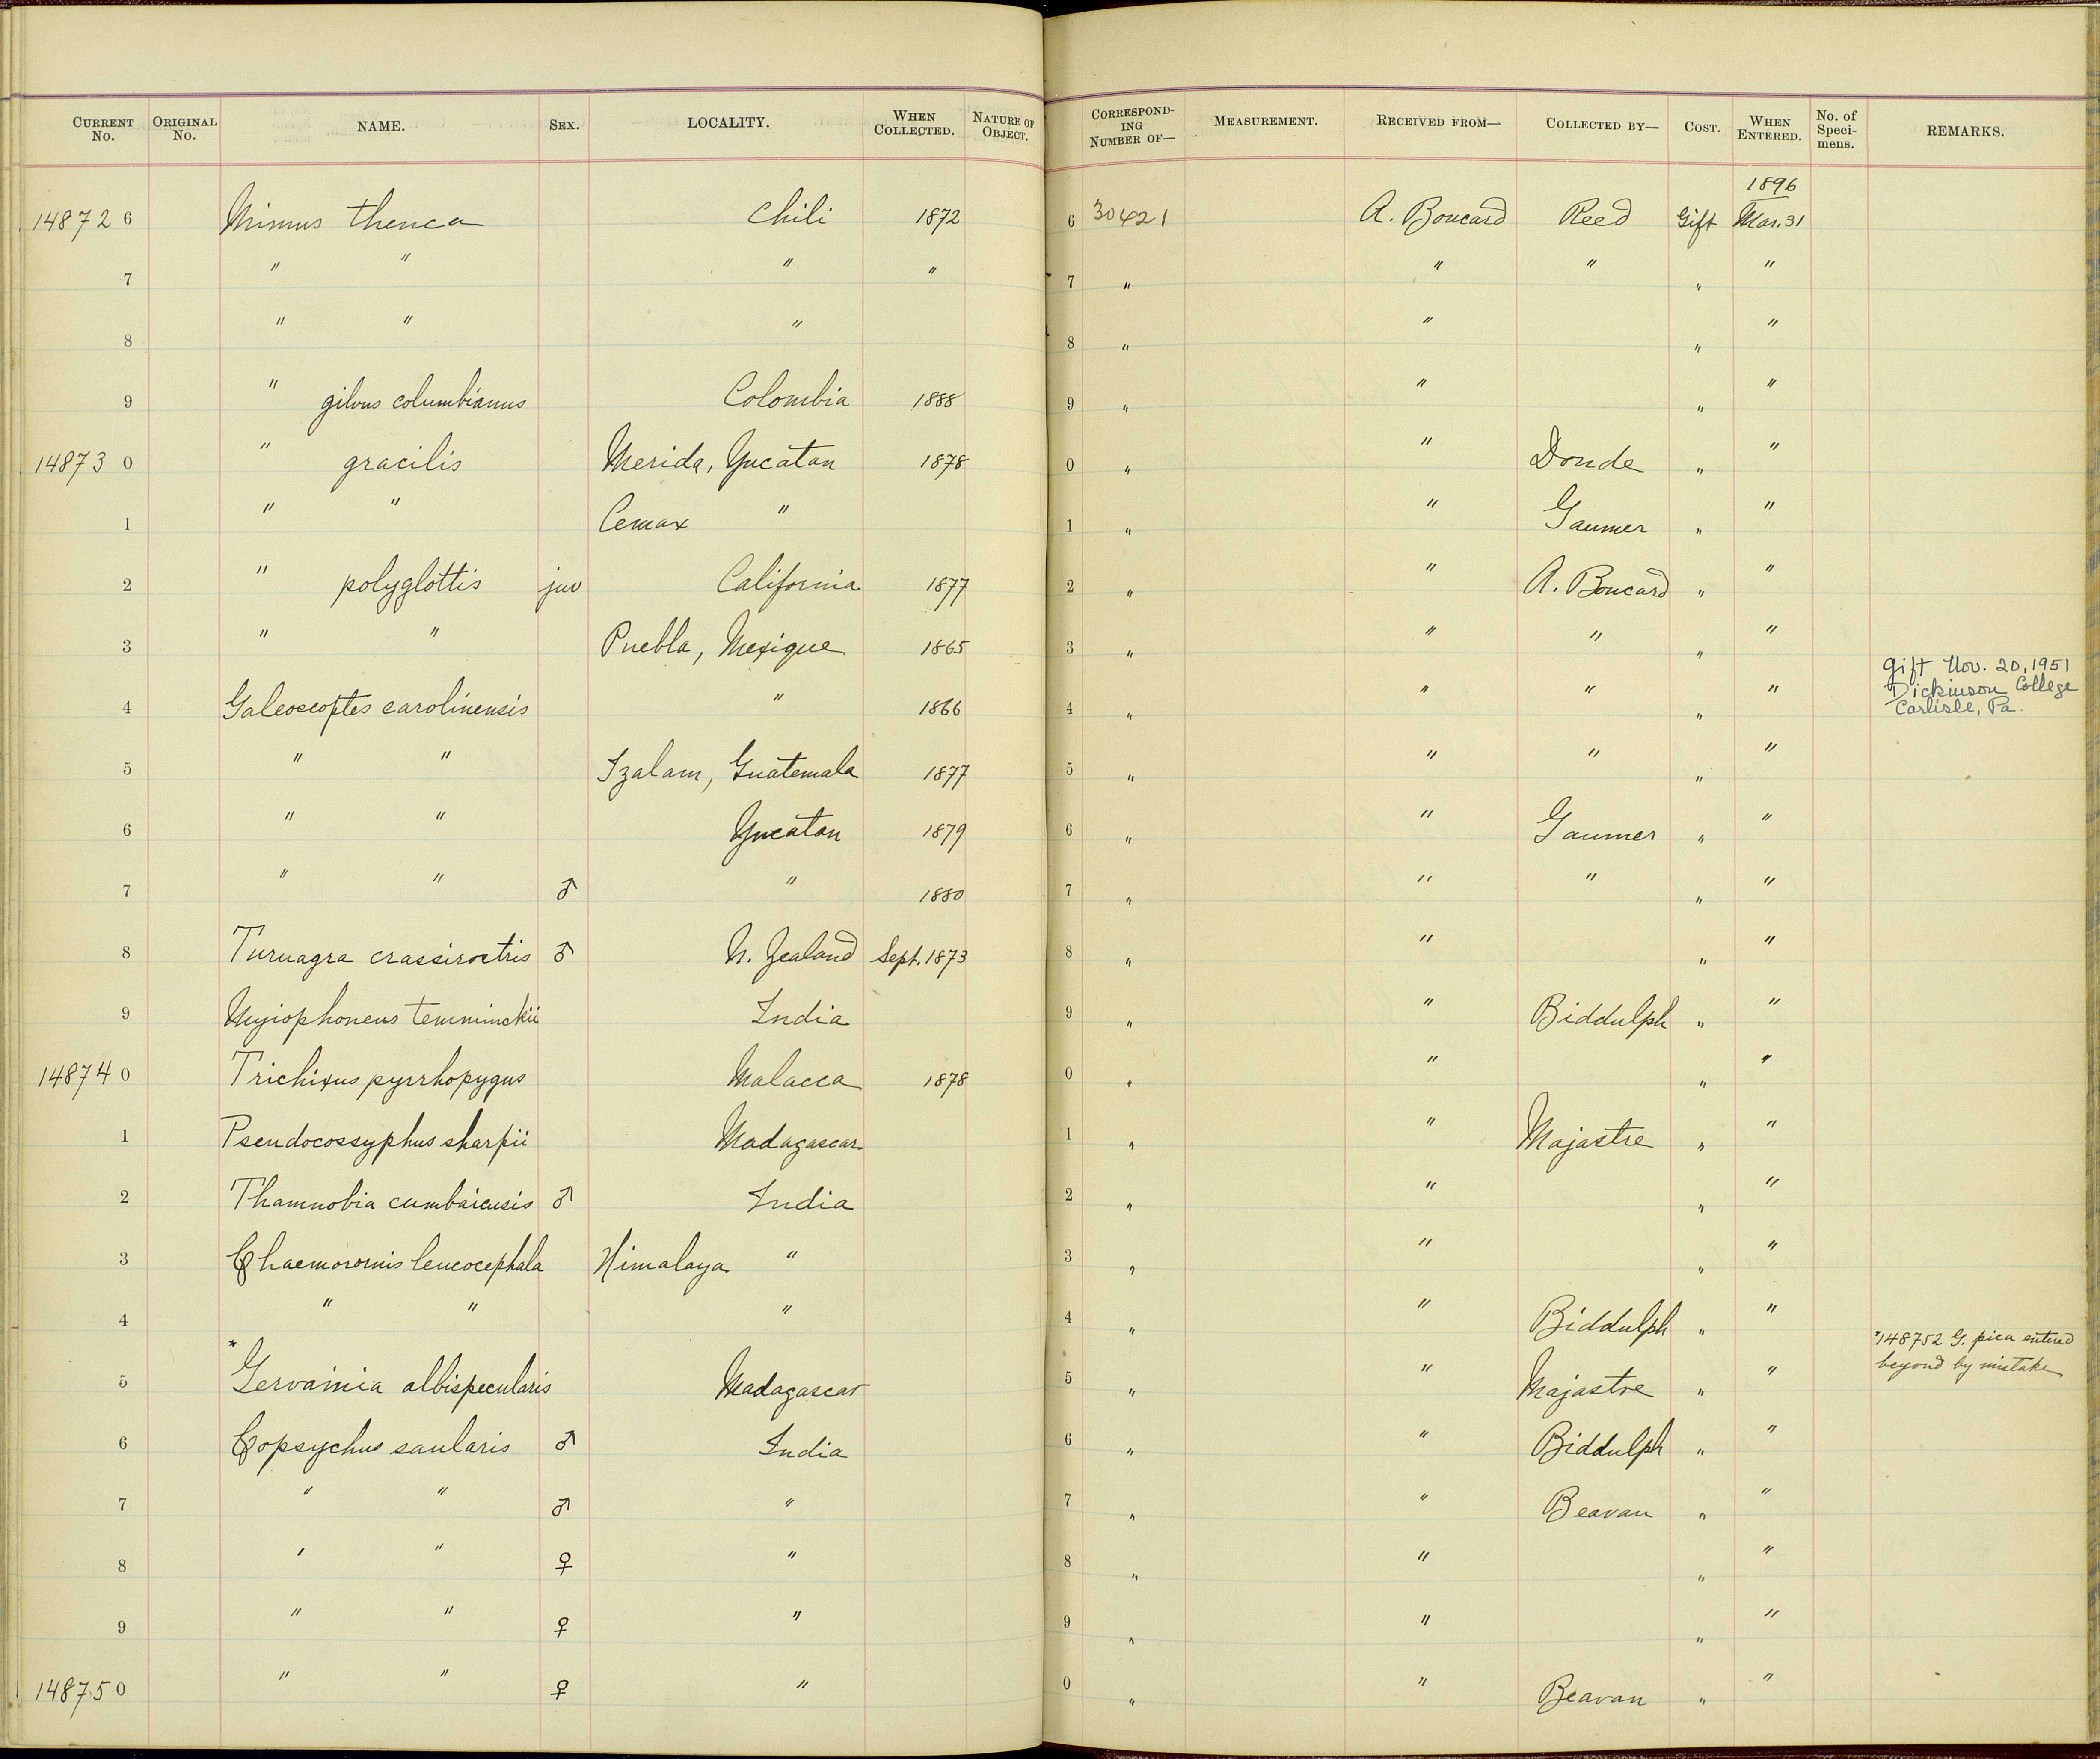 CURRENT No. ORIGINAL No. NAME. SEX. LOCALITY. WHEN COLLECTED. NATURE OF OBJECT. CORRESPOND-ING NUMBER OF— MEASUREMENT. RECEIVED FROM— COLLECTED BY— COST. WHEN ENTERED. No. of Speci-mens. REMARKS.
1896
148726 Mimus thenca Chili 1872 6 30421 A. Boucard Reed Gift Mar. 31
7 " " " " 7 " " " " "
8 " " " 8 " " " "
9 " gilvus columbianus Colombia 1888 9 " " " "
148730 " gracilis Merida, Yucatan 1878 0 " " Donde " "
1 " " Cemax " 1 " " Gaumer " "
2 " polyglottis juv California 1877 2 " " A. Boucard " "
3 " " Puebla, Mexique 1865 3 " " " " "
4 Galeoscoptes carolinensis " 1866 4 " " " " " Gift Nov. 20, 1951
Dickinson College
Carlisle, Pa.
5 " " Izalam, Guatemala 1877 5 " " " " "
6 " " Yucatan 1879 6 " " Gaumer " "
7 " " ♂ " 1880 7 " " " " "
8 Turnagra crassirostris ♂ N. Zealand Sept. 1873 8 " " " "
9 Myiophoneus temminckii India 9 " " Biddulph " "
148740 Trichixus pyrrhopygus Malacca 1878 0 " " " "
1 Pseudocossyphus sharpii Madagascar 1 " " Majastre " "
2 Thamnobia cambaiensis ♂ India 2 " " " "
3 Chaemorornis leucocephala Himalaya " 3 " " " "
4 " " " 4 " " Biddulph " "
5 *Gervainia albispecularis Madagascar 5 " " Majastre " " *148752 G. pica entered
beyond by mistake
6 Copsychus saularis ♂ India 6 " " Biddulph " "
7 " " ♂ " 7 " " Beavan " "
8 " " ♀ " 8 " " " "
9 " " ♀ " 9 " " " "
148750 " " ♀ " 0 " " Beavan " "